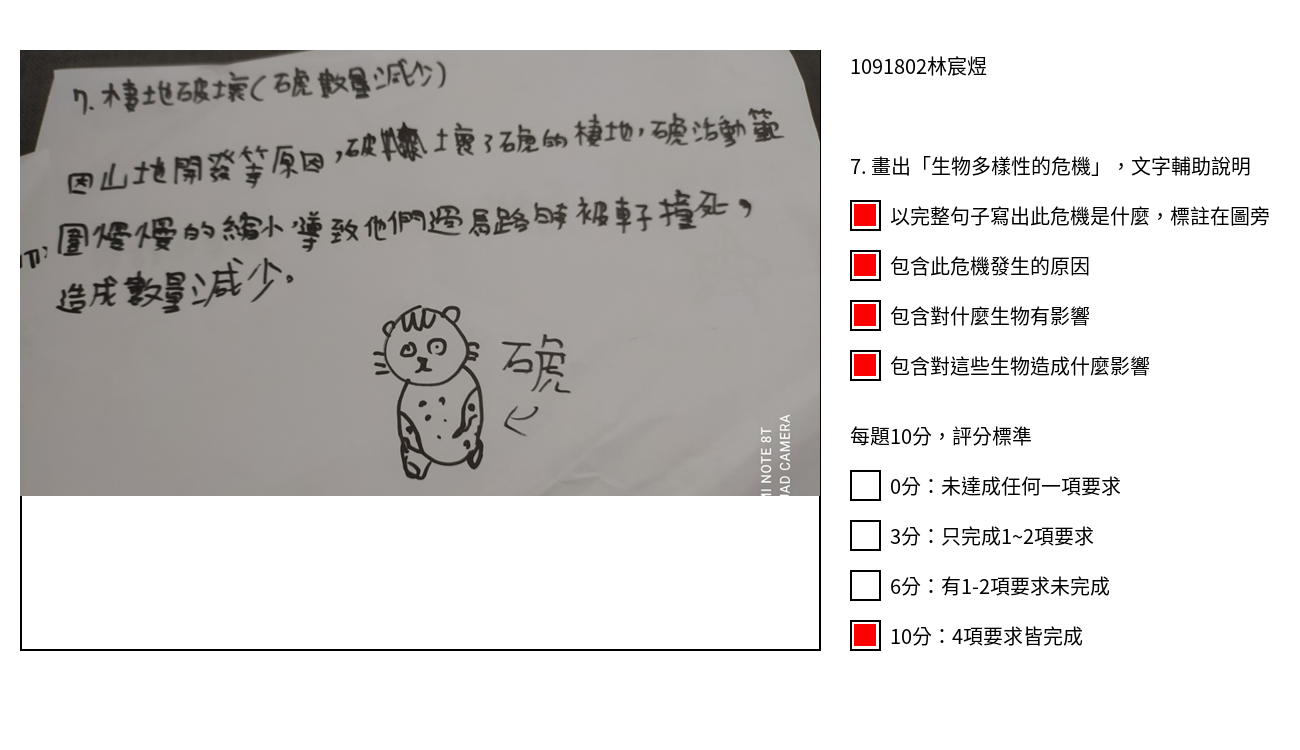 7. 棲地破壞(石虎數量減少)
因山地開發等原因,破壞了石虎的棲地,石虎活動範
圍慢慢的縮小,導致他們過馬路時被車子撞死,
造成數量減少。
石虎
MI NOTE 8T
UAD CAMERA
1091802林宸煜
7. 畫出「生物多樣性的危機」,文字輔助說明
以完整句子寫出此危機是什麼,標註在圖旁
包含此危機發生的原因
包含對什麼生物有影響
包含對這些生物造成什麼影響
每題10分,評分標準
0分:未達成任何一項要求
3分:只完成1~2項要求
6分:有1-2項要求未完成
10分:4項要求皆完成